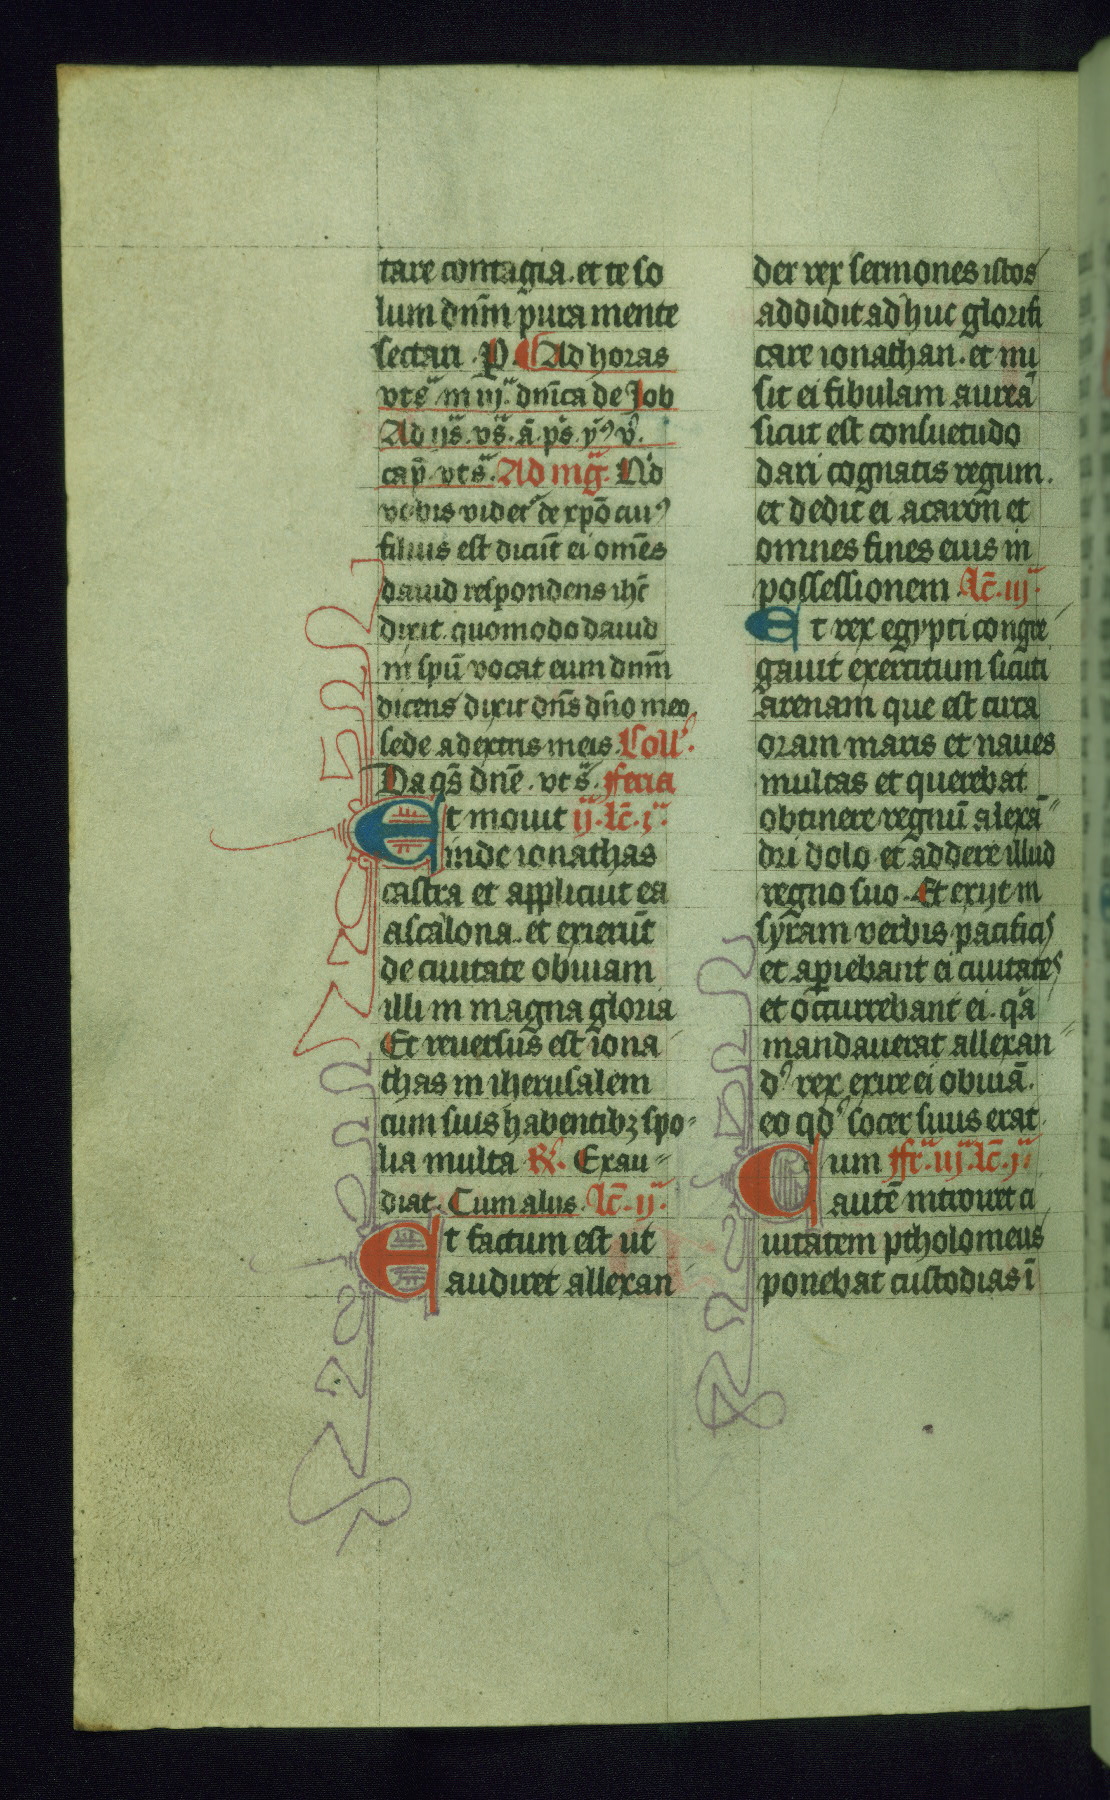 tare contagia. et te so
lum dnm̄ pura mente
sectari. P. Ad horas
vts̄ in iij. dnīca de Job
Ad ijs̄. vs̄. ā. ps̄. ꝟ.
cap̄. vts̄. Ad mḡ. Qd
vobis videt᷑ de xp̄o cuiꝰ
filius est dicūt ei om̄es
dauid respondens ihc̄
dixit. quomodo dauid
in spū vocat eum dnm̄
dicens dixit dn̄s dn̄o meo
sede a dextris meis. Coll᷑.
Da qs̄ dn̄e. vts̄. fferia
Et mouit ij. lc̄. j.
inde ionathas
castra et applicuit ea
ascalona. et exierūt
de ciuitate obuiam
illi in magna gloria
Et reuersus est iona
thas in iherusalem
cum suis habentibꝫ spo-
lia multa ℟. Exau-
diat. Cum alijs. lc̄. ij.
Et factum est ut
audiret allexan
der rex sermones istos
addidit adhuc glorifi
care ionathan. et mi
sit ei fibulam aureā
sicut est consuetudo
dari cognatis regum.
et dedit ei acaron et
omnes fines eius in
possessionem lc̄. iij.
Et rex egypti congre
gauit exercitum sicuti
arenam que est circa
oram maris et naues
multas et querebat
obtinere regnū alexā-
dri dolo et addere illud
regno suo. Et exijt in
syriam verbis pacificis
et aꝑiebant ei ciuitates
et occurrebant ei. qa
mandauerat allexan-
dꝰ rex exire ei obuiā.
eo qd᷑ socer suus erat
Cum ffr. iij. lc̄. j.
autē introiret ci
uitatem ptholomeus
ponebat custodias ī